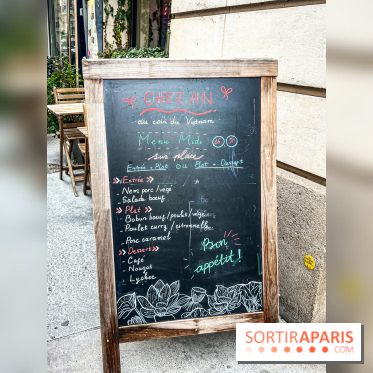 CHEZ AN
au coin du Vietnam
Menu Midi
sur place
Entrée + Plat ou Plat + Dessert
Entrée
- Nem porc / végé
- Salade bœuf
Plat
- Bobun bœuf / poulet / végé
- Poulet curry / citronnelle
- Porc caramel
Dessert
- Café
- Nougat
- Lychee
Bon
appétit!
SORTIRAPARIS
.COM